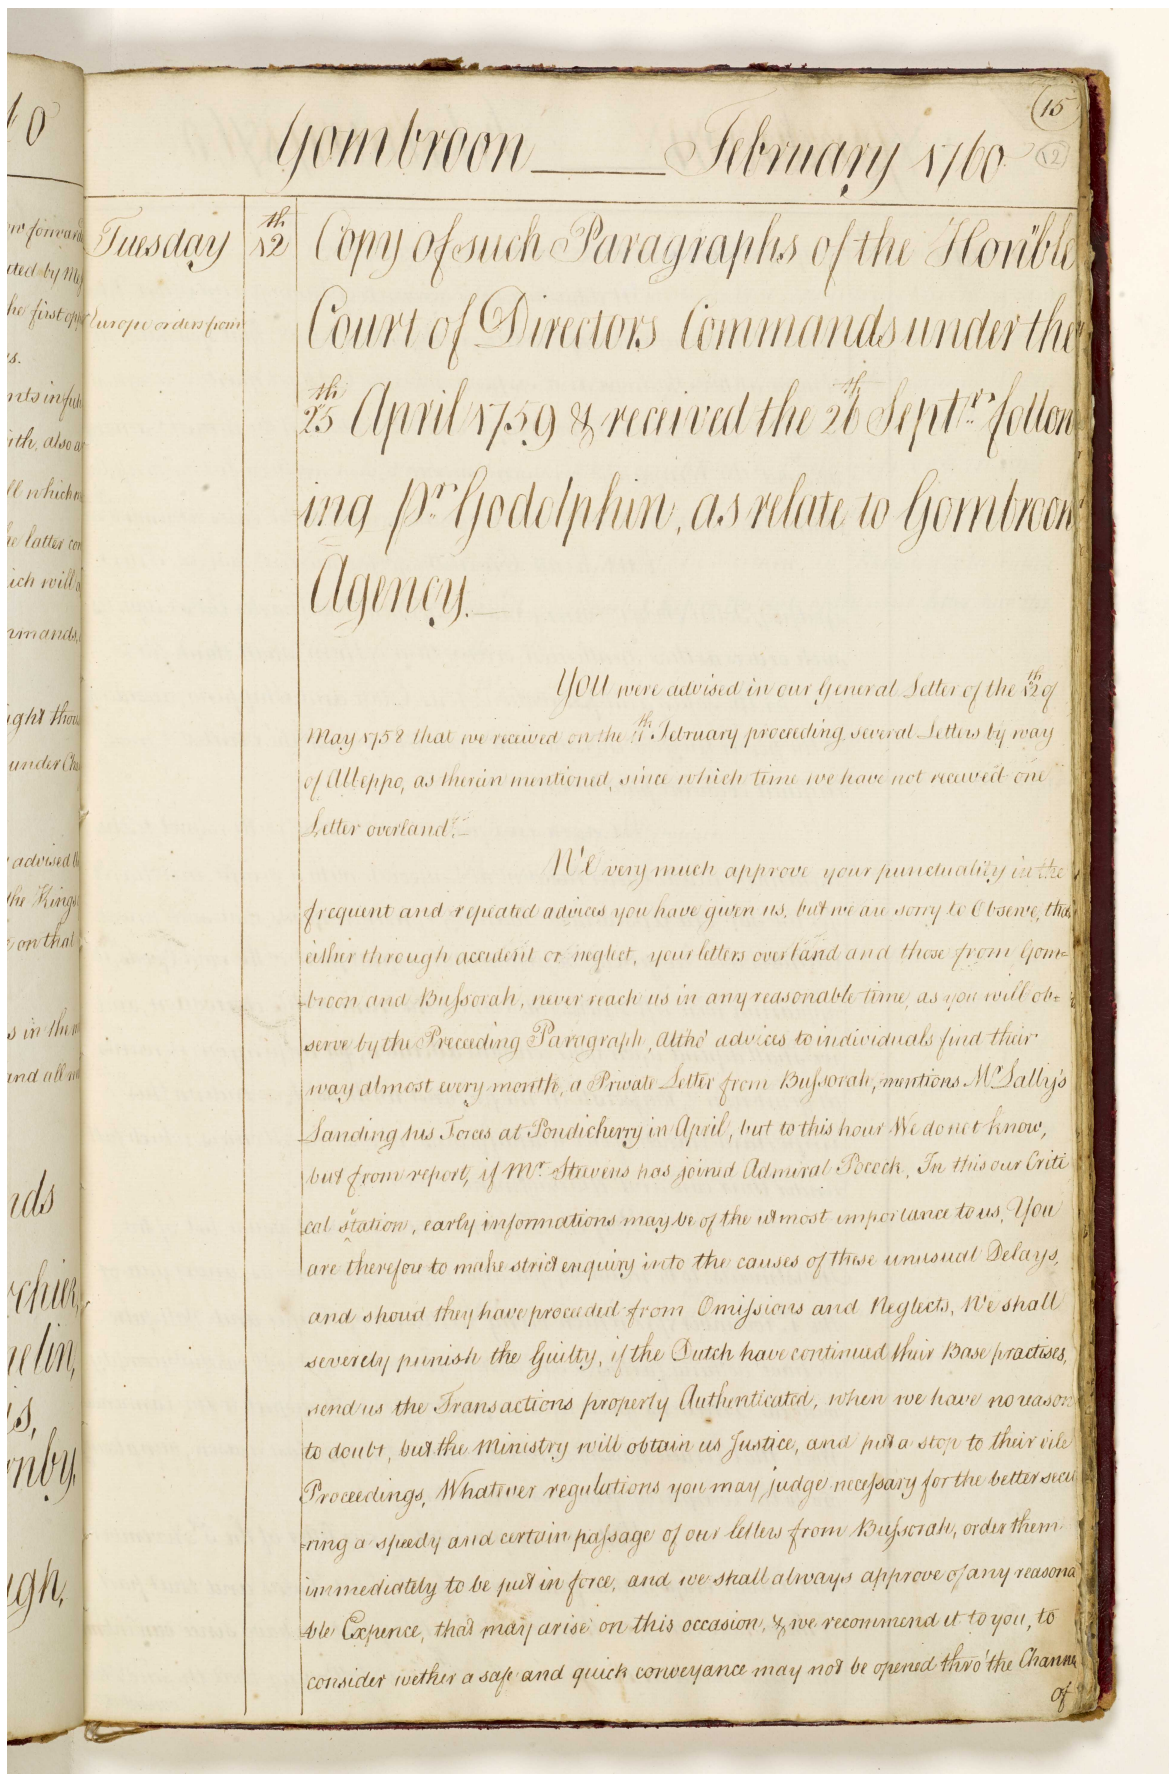 15
12
Gombroon February 1760
Tuesday 12th
Europe orders from
Copy of such Paragraphs of the Hon'ble
Court of Directors Commands under the
25th April 1759 & received the 26th Septr. follow
ing pr. Godolphin, as relate to Gombroon
Agency.
You were advised in our General Letter of the 12th of
May 1758 that we received on the 11th February proceeding several Letters by way
of Alleppo, as therein mentioned, since which time we have not received one
Letter overland.
We very much approve your punctuality in the
frequent and repeated advices you have given us, but we are sorry to Observe, that
either through accident or neglect, your letters overland and those from Gom=
=broon and Bussorah, never reach us in any reasonable time, as you will ob=
serve by the Preceeding Paragraph, altho' advices to individuals find their
way almost every month, a Private Letter from Bussorah, mentions Mr. Lally's
Landing his Forces at Pondicherry in April, but to this hour We do not know,
but from report, if Mr. Stevens has joined Admiral Pocock, In this our Criti
cal station, early informations may be of the utmost importance to us, You
are therefore to make strict enquiry into the causes of these unusual Delays,
and shoud they have proceeded from Omissions and Neglects, We shall
severely punish the Guilty, if the Dutch have continued their Base practises,
send us the Transactions properly Authenticated, when we have no reason
to doubt, but the Ministry will obtain us Justice, and put a stop to their vile
Proceedings, Whatever regulations you may judge necessary for the better secu
=ring a speedy and certain passage of our letters from Bussorah, order them
immediately to be put in force, and we shall always approve of any reasona
ble Expence, that may arise on this occasion, & we recommend it to you, to
consider wether a safe and quick conveyance may not be opened thro' the Channel
of